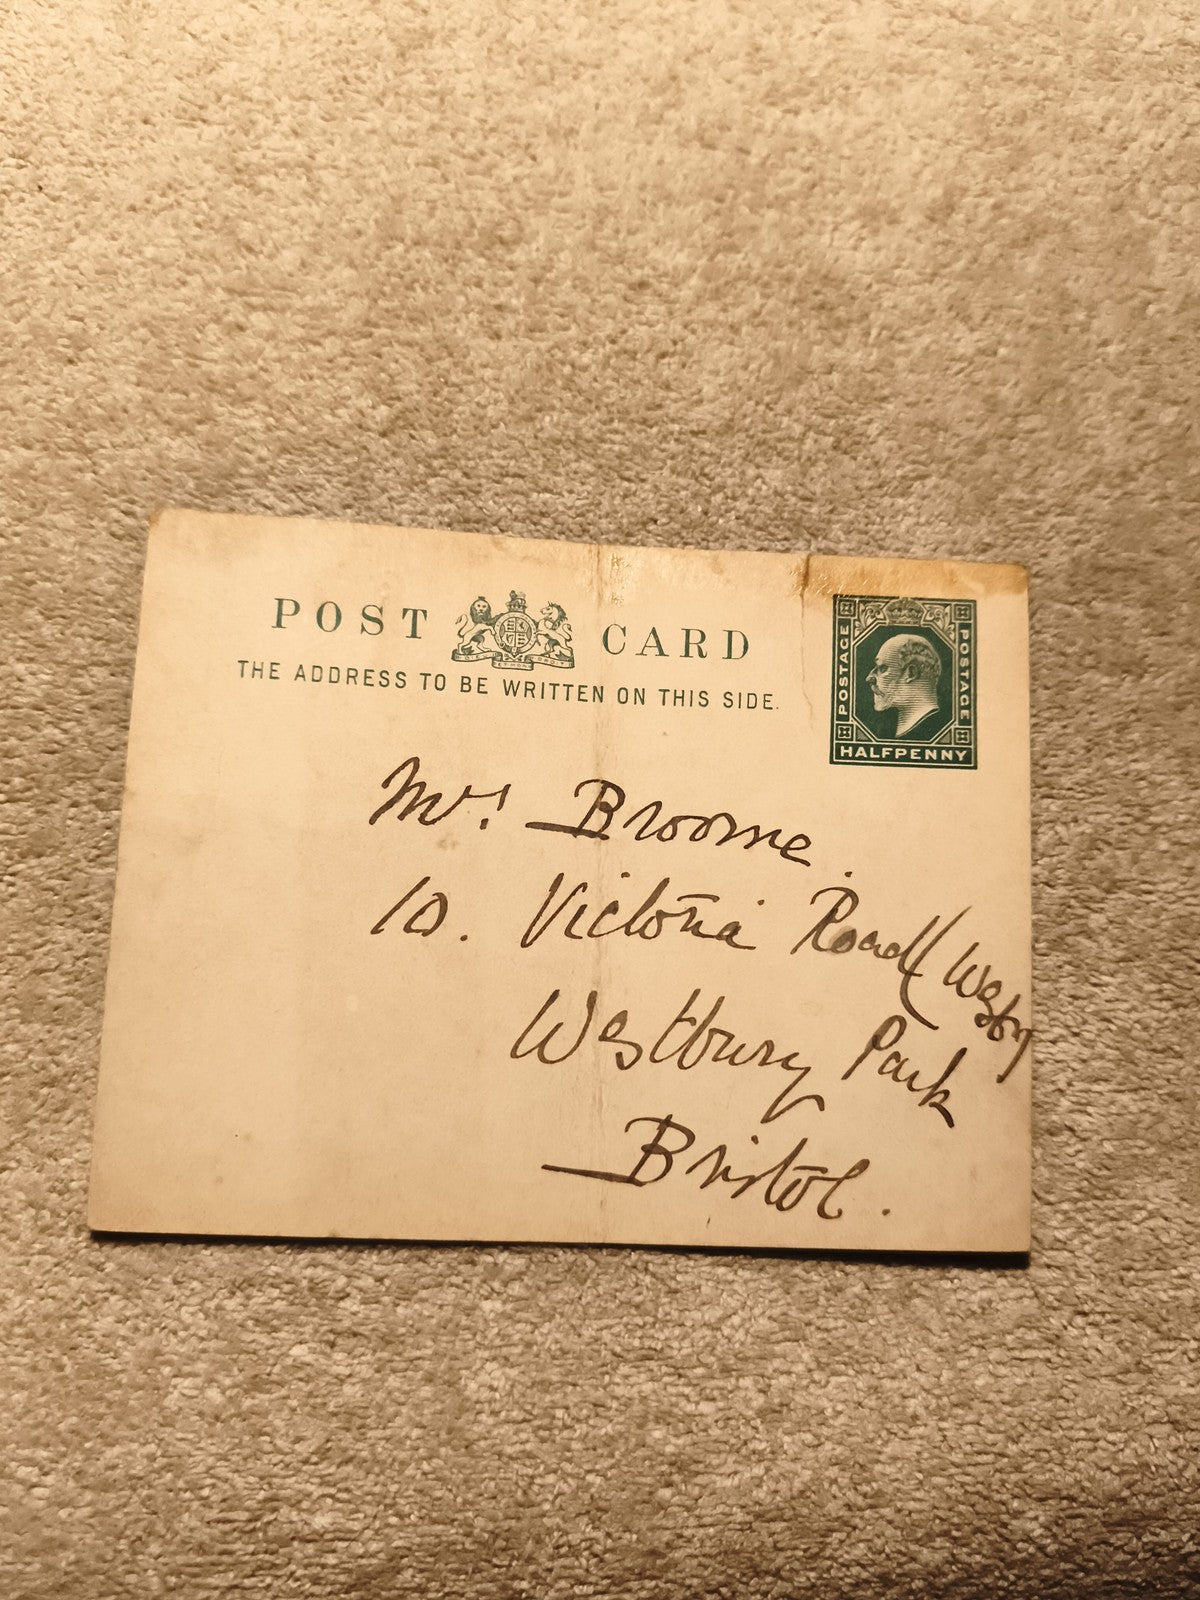 POST CARD
THE ADDRESS TO BE WRITTEN ON THIS SIDE.
POSTAGE POSTAGE
HALFPENNY
Mrs. Broome.
10. Victoria Road (West
Westbury Park
Bristol.